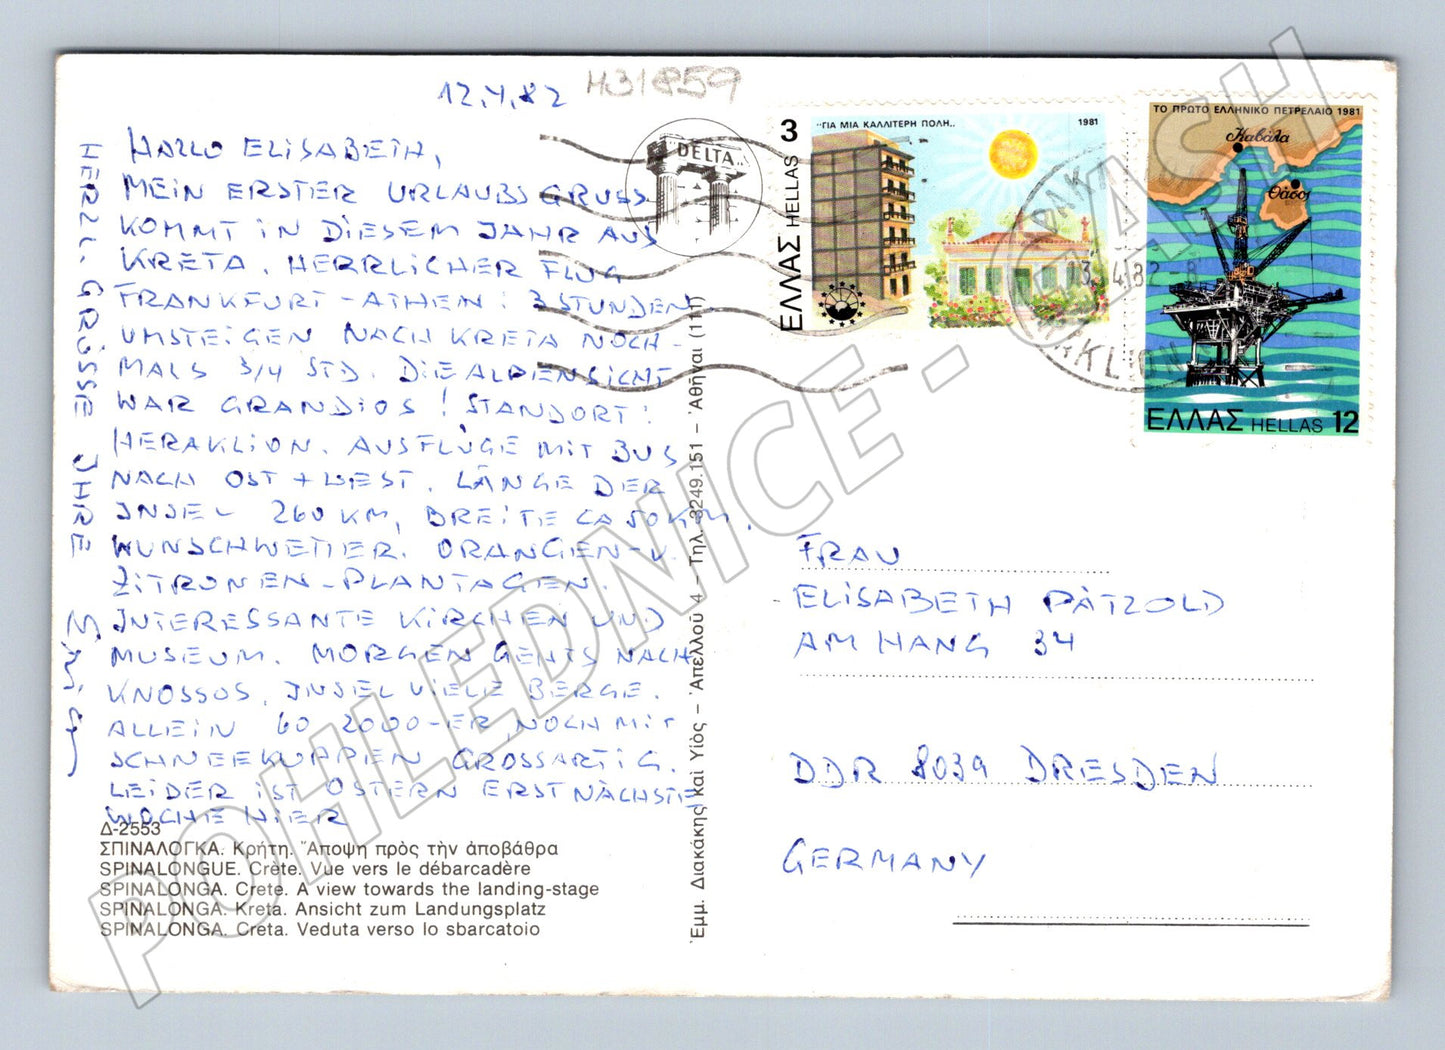 12.4.82
H31859
HALLO ELISABETH,
MEIN ERSTER URLAUBSGRUSS
KOMMT IN DIESEM JAHR AUS
KRETA. HERRLICHER FLUG
FRANKFURT-ATHEN: 3 STUNDEN
UMSTEIGEN NACH KRETA NOCH-
MALS 3/4 STD. DIE ALPENSICHT
WAR GRANDIOS! STANDORT:
HERAKLION. AUSFLÜGE MIT BUS
NACH OST + WEST. LÄNGE DER
INSEL 260 KM, BREITE CA 50 KM.
WUNSCHWETTER. ORANGEN-U.
ZITRONEN-PLANTAGEN.
INTERESSANTE KIRCHEN UND
MUSEUM. MORGEN GEHTS NACH
KNOSSOS. INSEL VIELE BERGE.
ALLEIN 60 2000-ER, NOCH MIT
SCHNEEKUPPEN GROSSARTIG.
LEIDER IST OSTERN ERST NÄCHSTE
WOCHE HIER
HERZL. GRÜSSE IHRE
Δ-2553
ΣΠΙΝΑΛΟΓΚΑ. Κρήτη. Ἄποψη πρὸς τὴν ἀποβάθρα
SPINALONGUE. Crète. Vue vers le débarcadère
SPINALONGA. Crete. A view towards the landing-stage
SPINALONGA. Kreta. Ansicht zum Landungsplatz
SPINALONGA. Creta. Veduta verso lo sbarcatoio
Ἐμμ. Διακάκης καὶ Υἱὸς – Ἀπελλοῦ 4 – Τηλ. 3249.151 – Ἀθῆναι (111)
DELTA
3
"ΓΙΑ ΜΙΑ ΚΑΛΛΙΤΕΡΗ ΠΟΛΗ..
1981
ΕΛΛΑΣ HELLAS
ΤΟ ΠΡΩΤΟ ΕΛΛΗΝΙΚΟ ΠΕΤΡΕΛΑΙΟ 1981
Καβάλα
Θάσος
ΕΛΛΑΣ HELLAS 12
FRAU
ELISABETH PÄTZOLD
AM HANG 34
DDR 8039 DRESDEN
GERMANY
POHLEDNICE - CASH